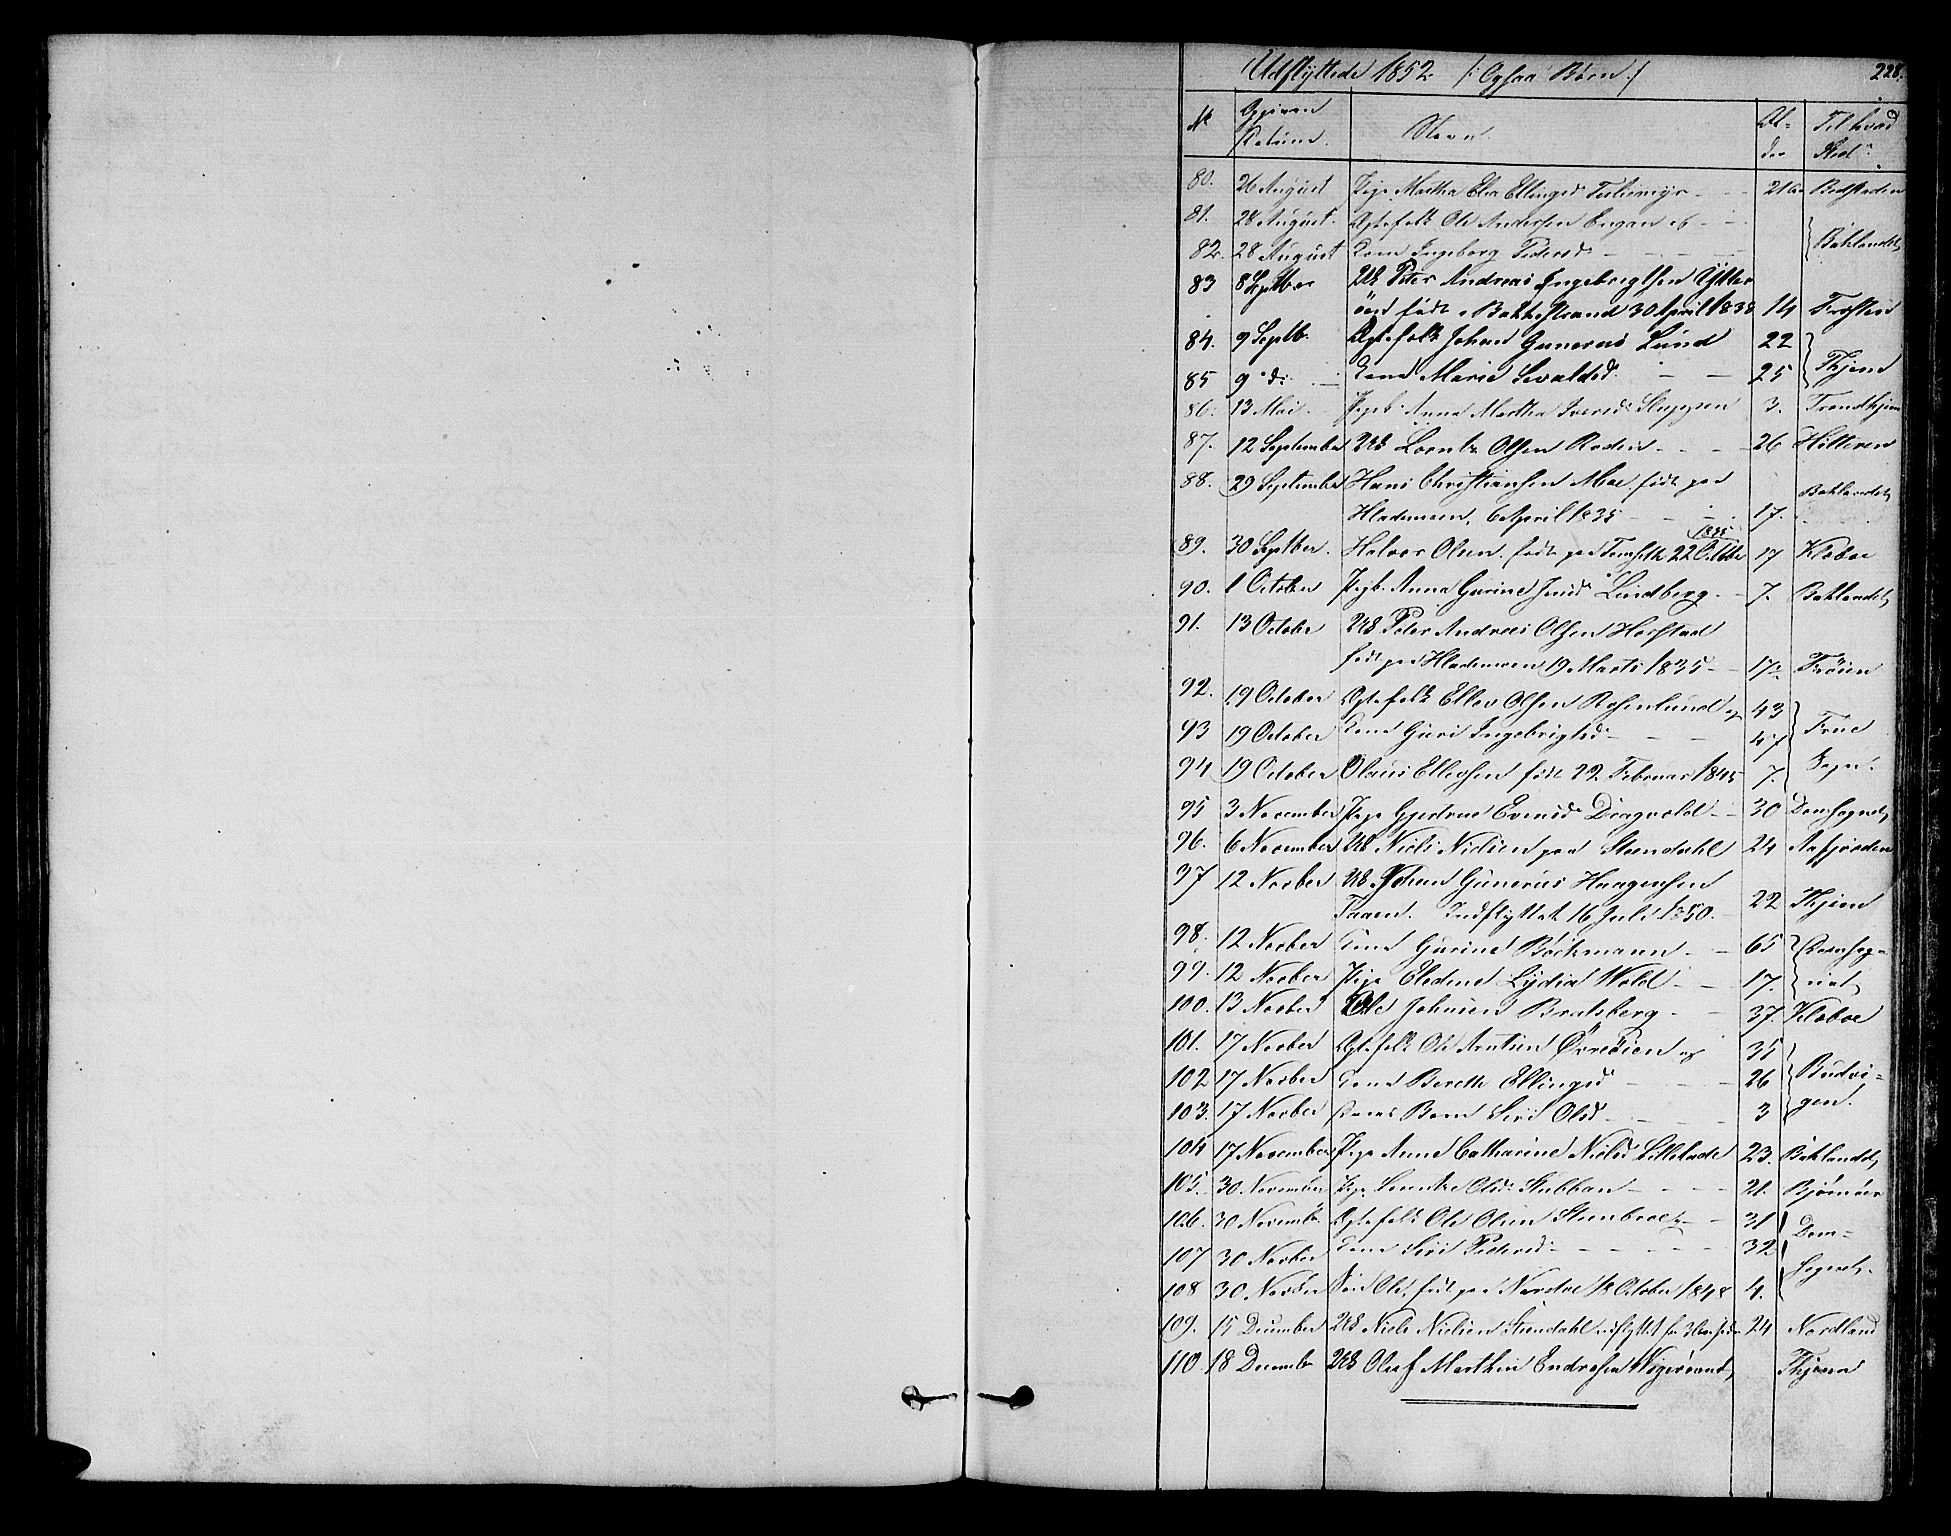 Udflyttede 1852. /: Ogsaa Børn :/ 228.
No Opgiven Datum. Navn. Alder Til hvad Sted.
80. 26 August Pige Martha Ellingsd. 21 
81. 28 August. Ægtefolk Ole Andersen Engan og
82. 28 August Kone Ingeborg Pedersd. Baklandet
83 8 Septber UK Peter Andreas Ingebrigtsen Ytter
öed født Bakkestrand 30 April 1838 14 Frosten
84. 9 Septb. Ægtefolk Johan Gunerius Lund 22
85 9 do Kone Marie Sevaldsd. 25 Thjem
86. 13 Mai Pigeb. Anna Martha Iversd. Sluppen 3. Trondhjem
87. 12 September UK Lorentz Olsen Rodin 26 Hitteren
88. 29 September Hans Christiansen Moe, født paa
Hlademoen, 6 April 1835 17. Baklandet
89. 30 Septber. Halvor Olsen. født paa 22 Octobr 1835 17 Klæboe
90. 1 October Pigb. Anna Gurine Lindberg 7. Baklandet
91. 13 October UK Peter Andreas Olsen Harstad
født paa Hlademoen 19 Marts 1835 17 Frøien
92. 19 October Ægtefolk Ellev Olsen Rosenlund og 43
93 19 October Kone Guri Ingebrigtsd. 47 Frue
94 19 October Olaus Ellevsen født 22 Februar 1845 7. Sogn.
95 3 November Pige Gjertrue Evensd. Dragvold 30 Domsognet
96. 6 November UK Niels Nielsen paa Steendahl 24 Aafjorden
97 12 Novber UK Johan Gunerius Haagensen
Faaen. Indflyttet 16 Juli 1850. 22 Thjem
98. 12 Novber Kone Gurine Böckmann 65 Domsog-
99. 12 Novber Pige Eledine Lydia Wold 17. net
100. 13 Novber Ole Johnsen Bratsberg 37. Klæboe
101. 17 Novber Ægtefolk Ole Arntsen Øvreöien og 35
102 17 Novber Kone Berethe Ellingsd 26 Budvi-
103. 17 Novber Deres Barn Siri Olsd. 3 gen.
104 17 November Pige Anne Catharina Nielsd Lillelade 23. Baklandet
105. 30. November Pige Lorentze Olsd. Stubban 21. Bjørnør
106. 30 Novembr Ægtefolk Ole Olsen Steenbroe 31 Dom-
107 30 Novber Kone Siri Pedersd. 32 Sognet.
108 30 Novber Siri Olsd. født paa Nardoe 18 October 1848 4.
109. 15 December UK Niels Nielsen Steendahl 24 Nordland
110. 18 Decembr UK Oluf Marthin Endresen Thjem